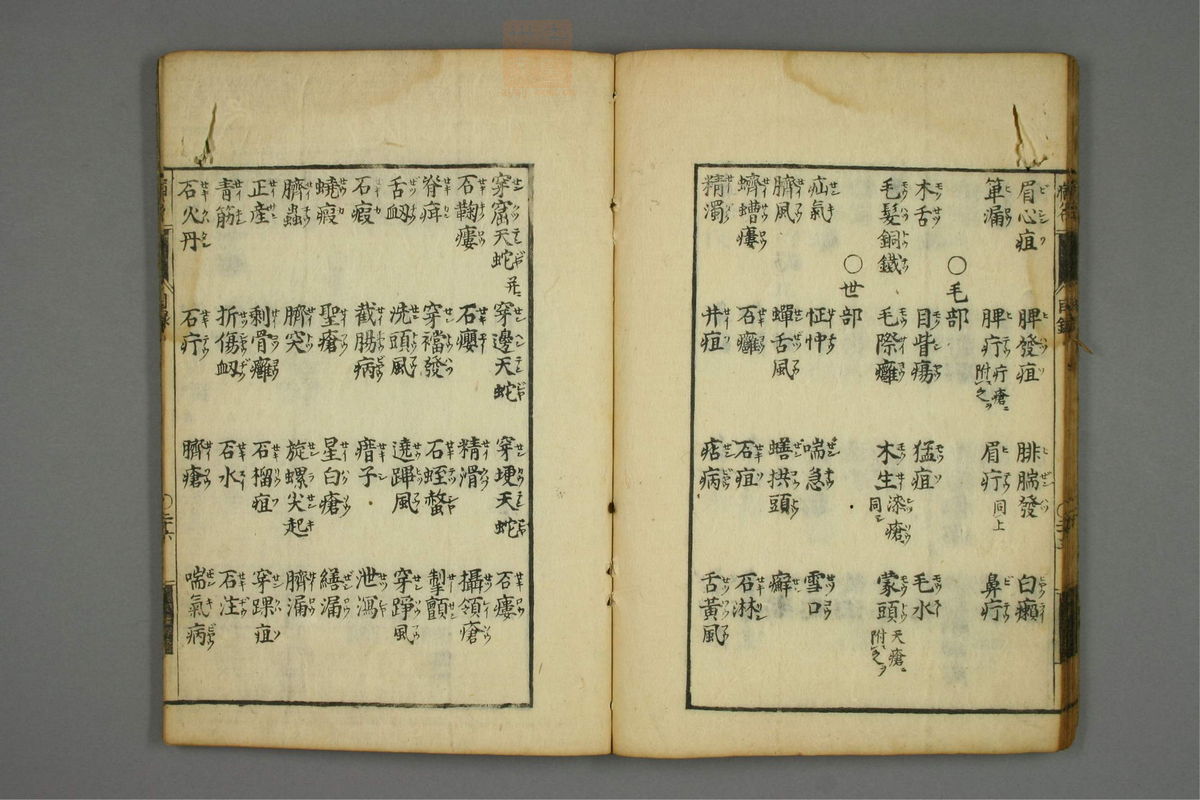 眉心疽 脾發疽 腓腨發 白癩
箄漏 脾疔 疔瘡ニ附之ヲ 眉疔 同上 鼻疔
○毛部
木舌 目眥瘍 猛疽 毛水
毛髮銅鐵 毛際癰 木生 漆瘡ニ同シ 蒙頭 天瘡ニ附之ヲ
○世部
疝氣 怔忡 喘急 雪口
臍風 蟬舌風 蟮拱頭 癬
蠐螬瘻 石癰 石疽 石淋
精濁 井疽 痁病 舌黃風
穿窟天蛇 并ニ 穿邊天蛇 穿埂天蛇 石瘻
石鞠瘻 石癭 精滑 攝領瘡
脊疳 穿襠發 石蛭螫 掣顫
舌衂 洗頭風 遶蹕風 穿踭風
石瘕 截腸病 瘡子 泄瀉
蟯瘕 聖瘡 星白瘡 繕漏
臍蟲 臍突 旋螺尖起 臍漏
正産 剩骨癰 石榴疽 穿踝疽
青筋 折傷衂 石水 石注
石火丹 石疔 臍瘡 喘氣病